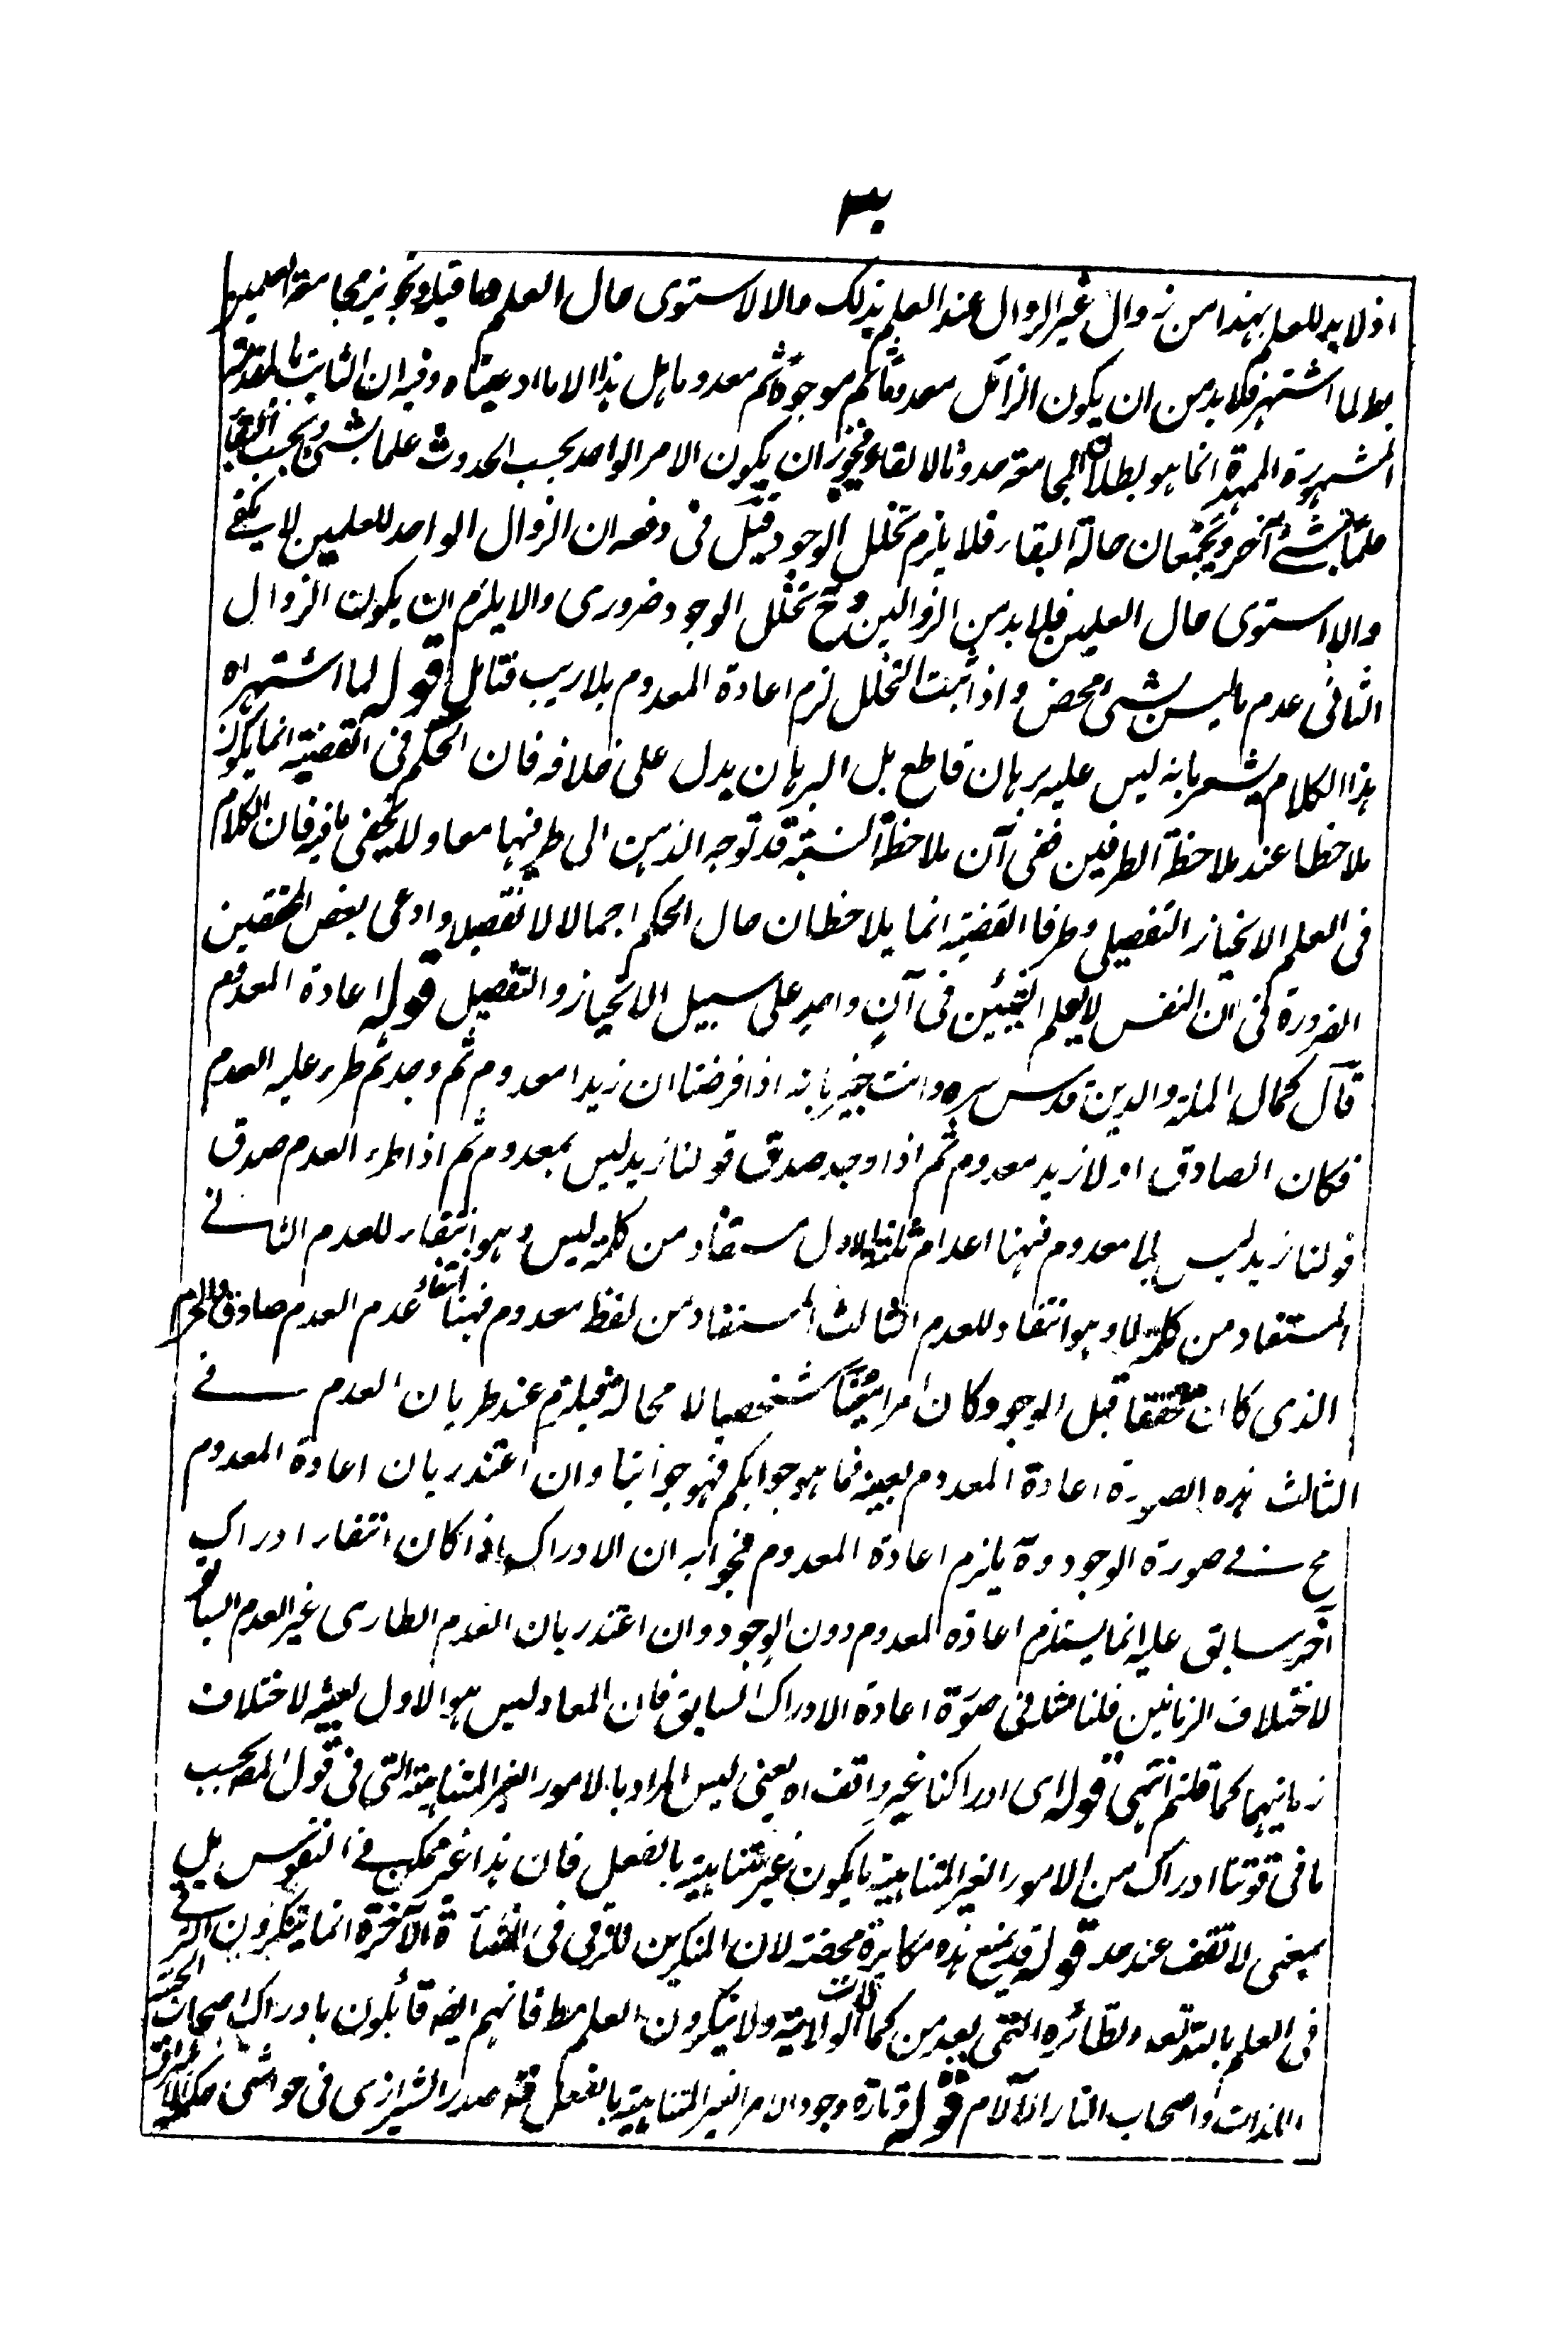 اذ لا بد للعلم بهذا من زوال غير الزوال عند العلم بذلك والا لاستوى حال العلم وتجويز مجامعة العلمين
بط لما اشتهر فلا بد من ان يكون الزائل معدوما ثم موجودا ثم معدوما هل هذا الا ما ادعيناه وفيه ان الثابت بالمقدمة
المشهورة الممهدة انما هو بطلان المجامعة حدوثا لا بقاء فيجوز ان يكون الامر الواحد بحسب الحدوث علما بشئ وبحسب البقاء
علما بشئ آخر ويجتمعان حالة البقاء فلا يلزم تخلل الوجود قيل في دفعه ان الزوال الواحد للعلمين لا يكفي
والا استوى حال العلمين فلا بد من الزوالين وح تخلل الوجود ضروري والا يلزم ان يكون الزوال
الثاني عدم ما ليس بشئ محض واذا ثبت التخلل لزم اعادة المعدوم بلا ريب فتامل قوله لما اشتهر اه
هذا الكلام يشعر بانه ليس عليه برهان قاطع بل البرهان يدل على خلافه فان الحكم في القضية انما يكون
ملاحظا عند ملاحظة الطرفين ففي آن ملاحظة النسبة قد توجه الذهن الى طرفيها معا ولا يخفى ما فيه فان الكلام
في العلم الانحياز التفصيلي وطرفا القضية انما يلاحظان حال الحكم اجمالا لا تفصيلا وادعى بعض المحققين
الضرورة في ان النفس لا يعلم الشيئين في آن واحد على سبيل الانحياز والتفصيل قوله اعادة المعدوم
قال كمال الملة والدين قدس سره وانت خبير بانه اذا فرضنا ان زيدا معدوم ثم وجد ثم طرء عليه العدم
فكان الصادق اولا زيد معدوم ثم اذا وجد صدق قولنا زيد ليس بمعدوم ثم اذا طرء العدم صدق
قولنا زيد ليس بلا معدوم فههنا اعدام ثلثة الاول مستفاد من كلمة ليس وهو انتفاء للعدم الثاني
المستفاد من كلمة لا وهو انتفاء للعدم الثالث المستفاد من لفظ معدوم فههنا انتفاء عدم العدم صادق والعدم
الذي كان متحققا قبل الوجود كان امرا شخصيا لا محالة فيلزم عند طريان العدم في
الثالث هذه الصورة اعادة المعدوم بعينه فما هو جوابكم فهو جوابنا وان اعتذر بان اعادة المعدوم
مح في صورة الوجود وة يلزم اعادة المعدوم فجوابه ان الادراك اذا كان انتفاء ادراك
آخر سابق عليه انما يستلزم اعادة المعدوم دون الوجود وان اعتذر بان العدم الطاري غير العدم السابق
لاختلاف الزمانين قلنا مثله في صورة اعادة الادراك السابق فان المعاد ليس هو الاول بعينه لاختلاف
زمانيهما كما قلتم انتهى قوله اى ادراكنا غير واقف اه يعني ليس المراد بالامور الغير المتناهية التي في قول المص بحسب
ما في قوتنا ادراك من الامور الغير المتناهية ما يكون غير متناهية بالفعل فان هذا غير ممكن في النفوس بل
بمعنى لا تقف عند حد قوله قد يمنع هذه مكابرة محضة لان المنكرين للترقي في النشأة الآخرة انما ينكرون الترقي
في العلم بالله تعالى ونظائره التي يعد من كمالات الولاية ولا ينكرون العلم مط فانهم ايضا قائلون بادراك اصحاب الجنة
اللذات واصحاب النار الآلام قوله وتارة وجود الامر الغير المتناهية بالفعل قه صدر الشيرازي في حواشي حكمة